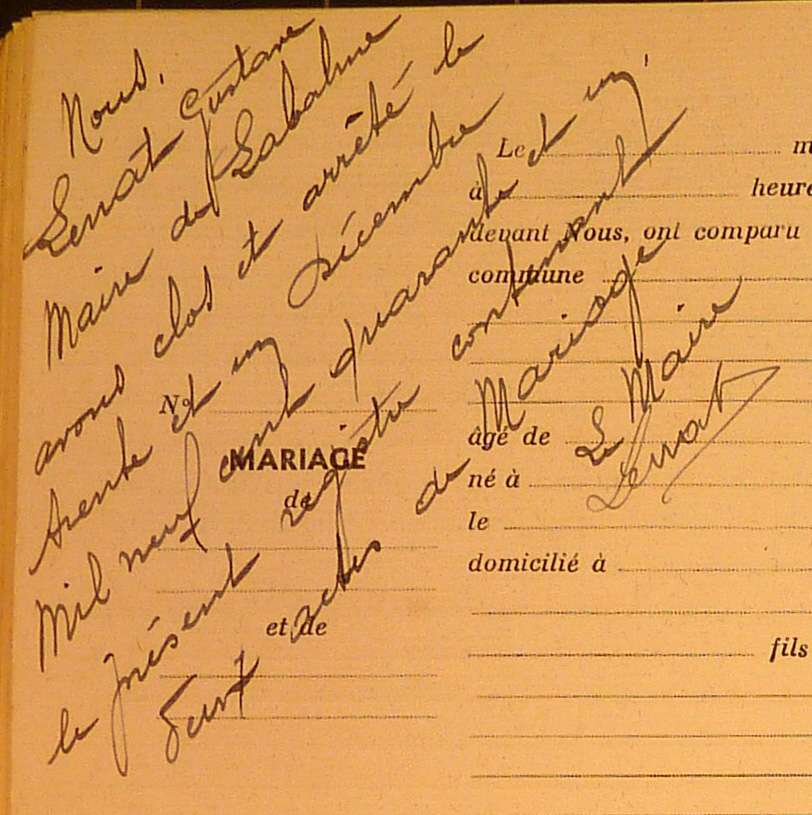 Nous,
Serrat Gustave
Maire de Labalme
avons clos et arrêté le
trente et un Décembre
Mil neuf cent quarante et un,
le présent registre contenant
deux actes de Mariage
Le Maire
Serrat
No
MARIAGE
de
et de
Le
à heure
devant Nous, ont comparu
commune
âgé de
né à
le
domicilié à
fils